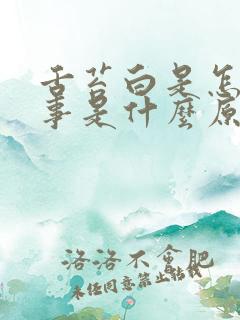 舌苔白是怎
事是什麼原
洛洛不會肥
未经同意禁止转载